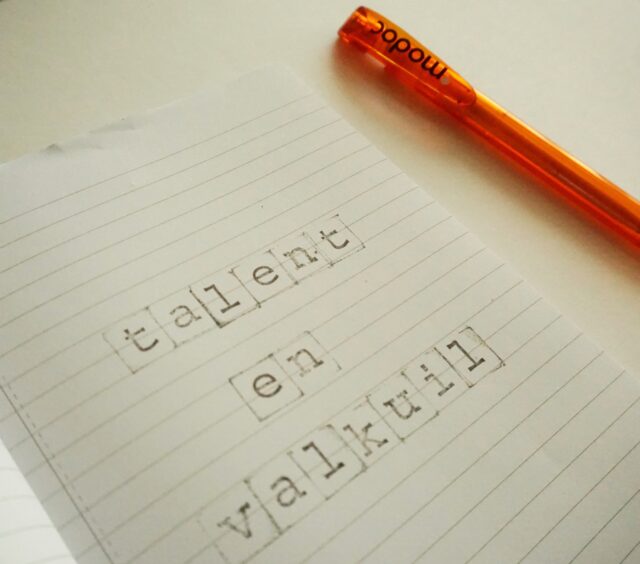 modoc
talent
en
valkuil